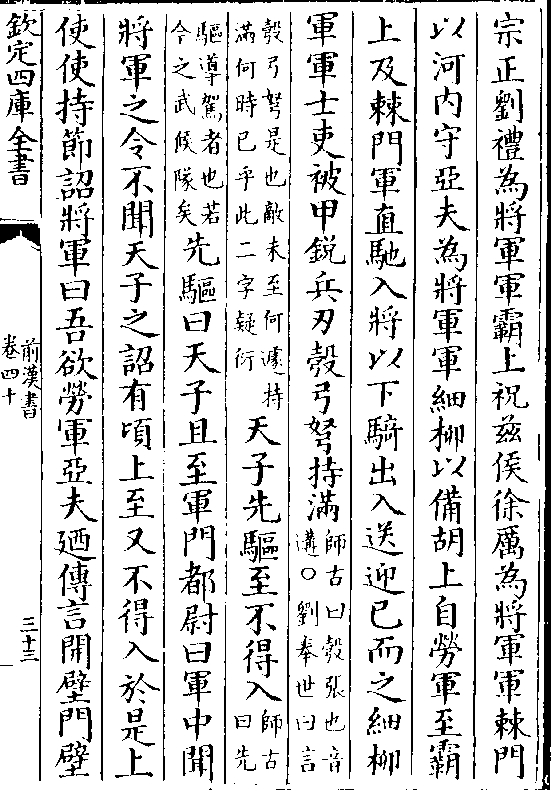 宗正劉禮為將軍軍霸上祝茲侯徐厲為將軍軍棘門
以河内守亞夫為將軍軍細柳以備胡上自勞軍至霸
上及棘門軍直馳入將以下騎出入送迎已而之細柳
軍軍士吏被甲鋭兵刃彀弓弩持滿師古曰彀張也音
遘○劉奉世曰言
彀弓弩是也敵未至何遽持
滿何時已乎此二字疑衍天子先驅至不得入師古
曰先
驅導駕者也若
今之武候隊矣先驅曰天子且至軍門都尉曰軍中聞
將軍之令不聞天子之詔有頃上至又不得入於是上
使使持節詔將軍曰吾欲勞軍亞夫廼傳言開壁門壁
欽定四庫全書
前漢書
卷四十
三十三